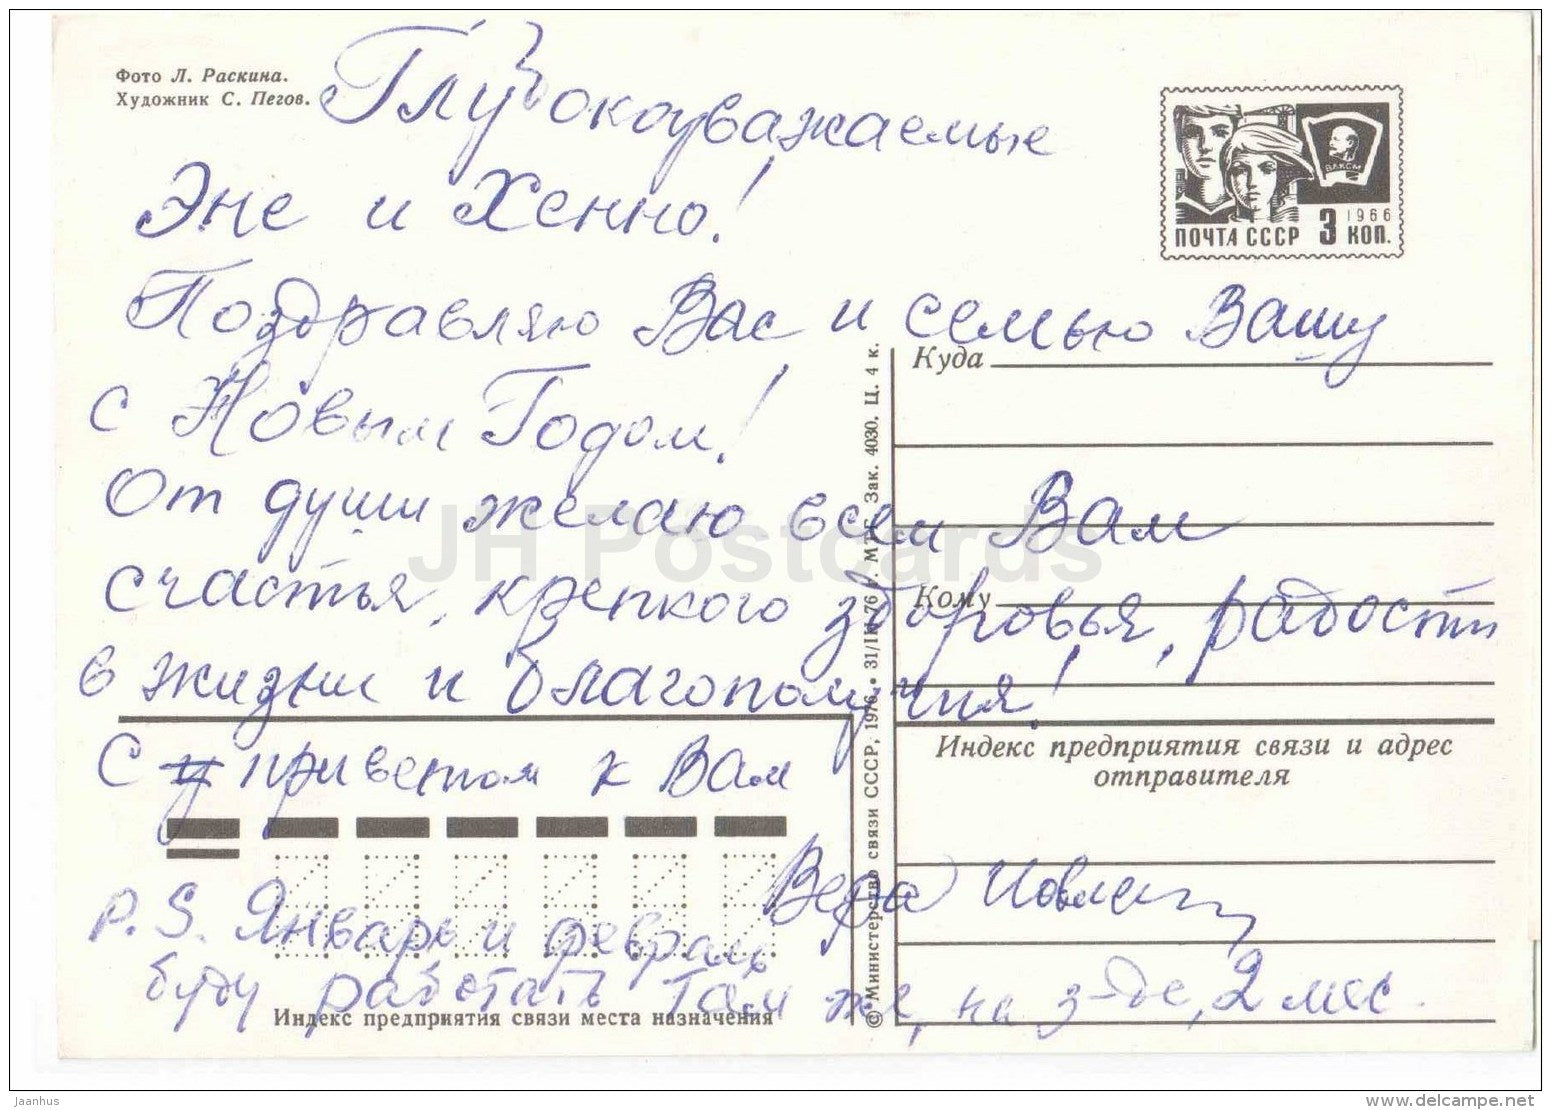 Фото Л. Раскина.
Художник С. Пегов.
Глубокоуважаемые
Эне и Хенно!
Поздравляю Вас и семью Вашу
с Новым Годом!
От души желаю всем Вам
счастья, крепкого здоровья, радости
в жизни и благополучия!
С приветом к Вам
Вера
P.S. Январь и февраль
буду работать там же, на з-де, 2 мес.
ВЛКСМ
1966
ПОЧТА СССР 3 КОП.
Куда
Кому
Индекс предприятия связи и адрес
отправителя
Индекс предприятия связи места назначения
© Министерство связи СССР, 1976. 31/III-76 г. МТГ. Зак. 4030. Ц. 4 к.
JH Postcards
Jaanhus
www.delcampe.net